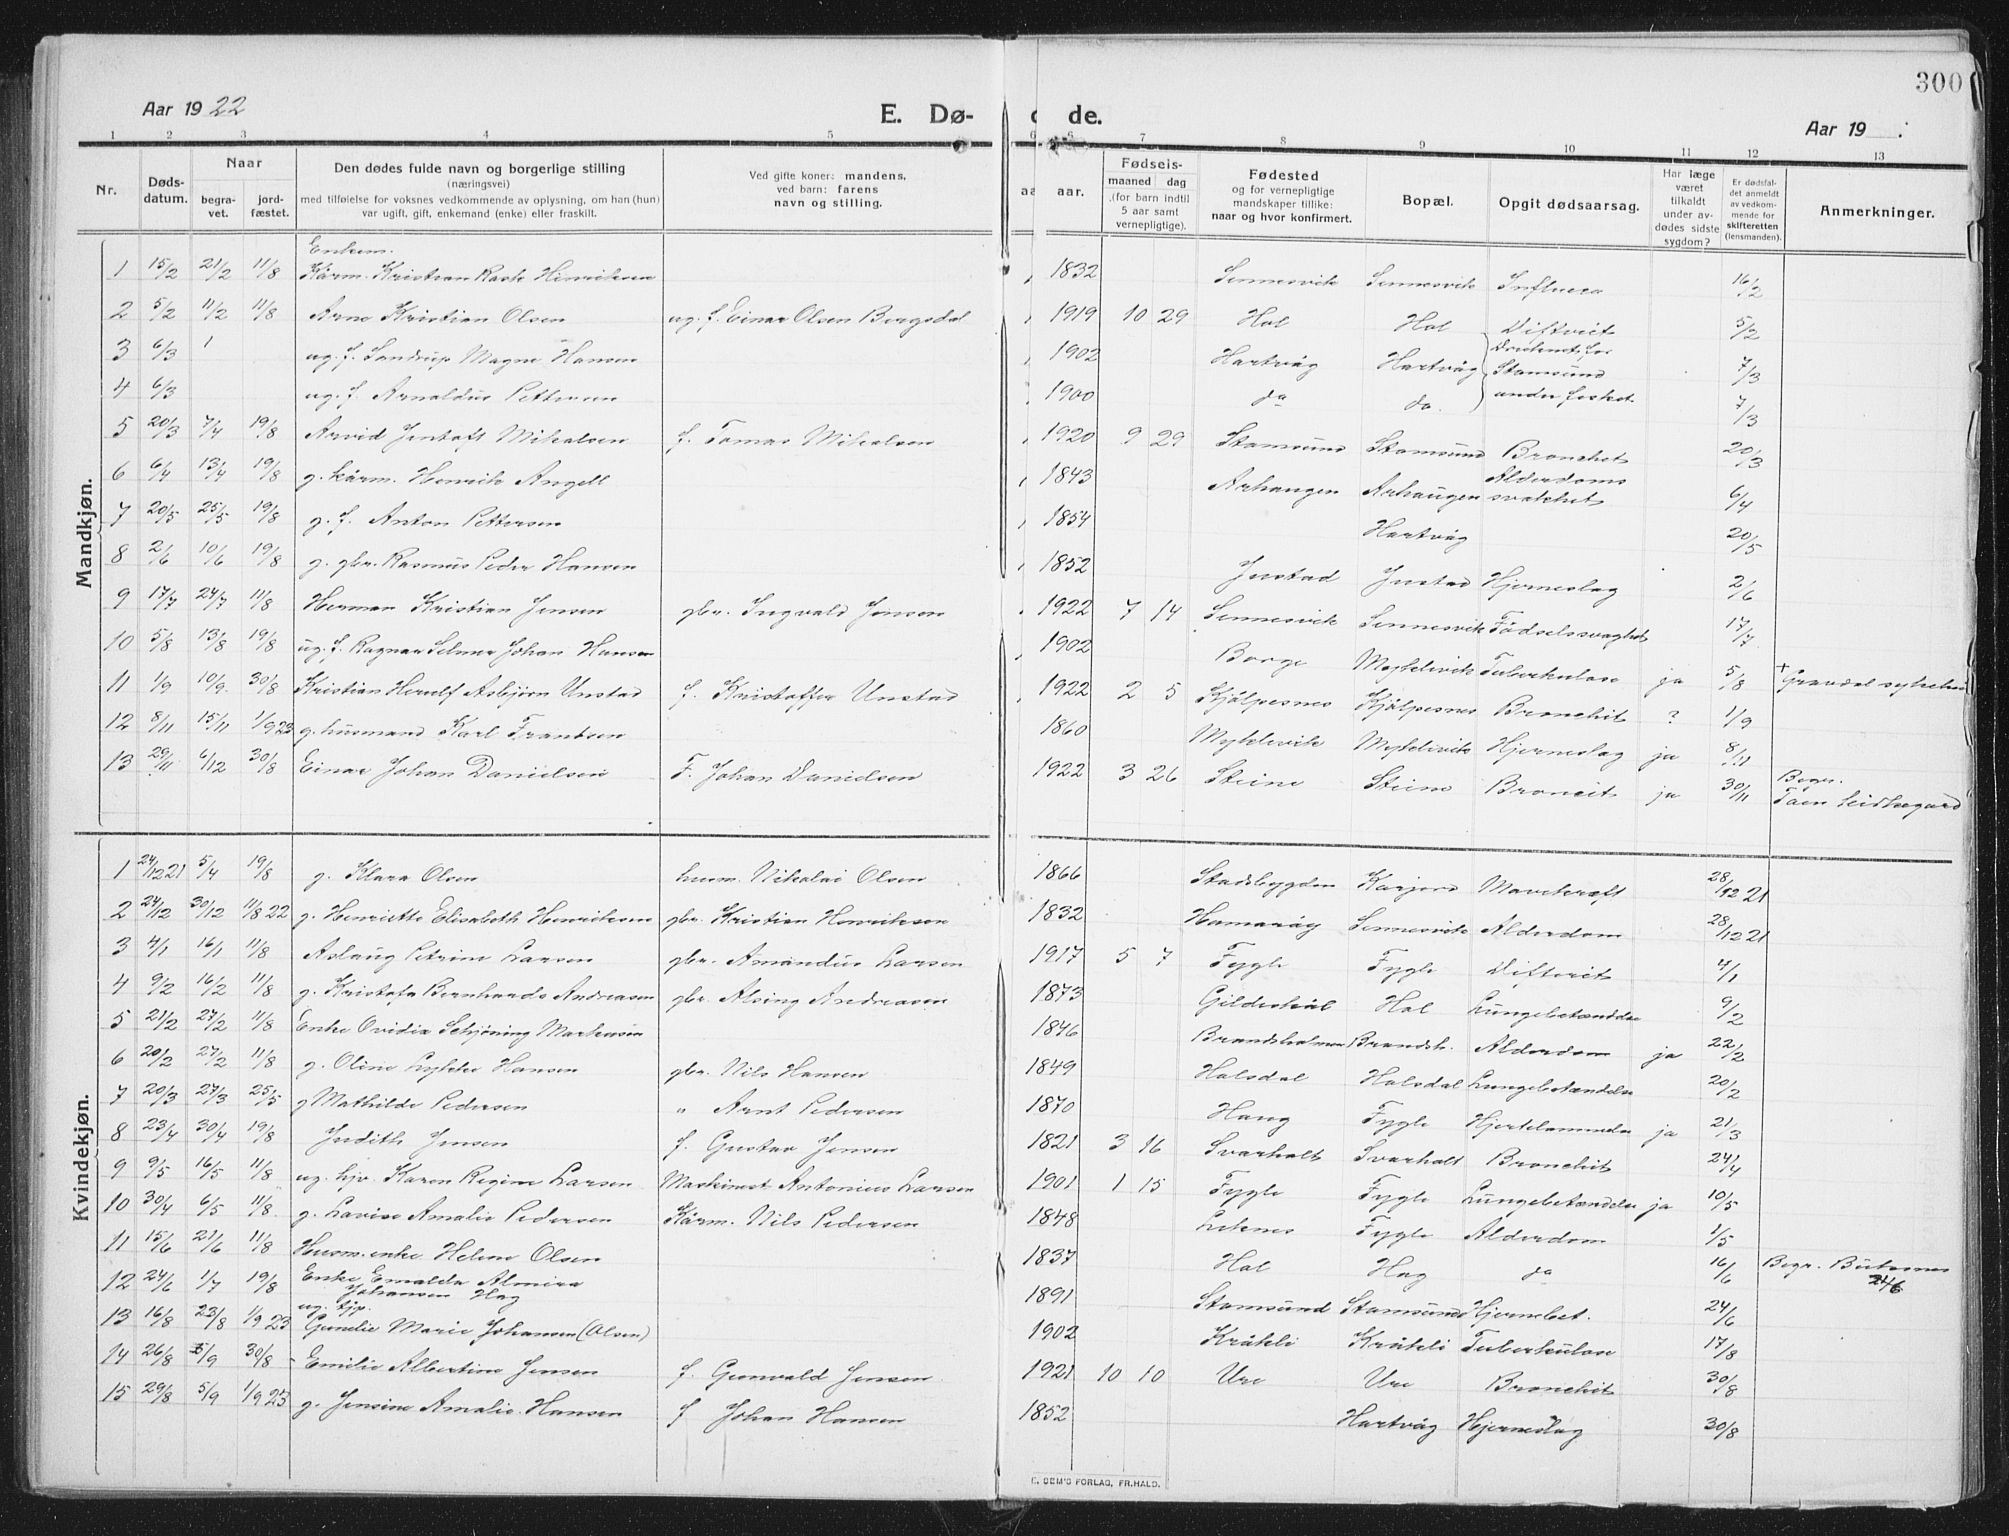 300
Aar 1922
E. Dø-
de.
Aar 19
1 2 3 4 5 6 7 8 9 10 11 12 13
Nr.
Døds-
datum.
Naar
begra-
vet.
jord-
fæstet.
Den dødes fulde navn og borgerlige stilling
(næringsvei)
med tilføielse for voksnes vedkommende av oplysning, om han (hun)
var ugift, gift, enkemand (enke) eller fraskilt.
Ved gifte koner: mandens,
ved barn: farens
navn og stilling.
aar.
Fødseis-
maaned dag
(for barn indtil
5 aar samt
vernepligtige).
Fødested
og for vernepligtige
mandskaper tillike:
naar og hvor konfirmert.
Bopæl.
Opgit dødsaarsag.
Har læge
været
tilkaldt
under av-
dødes sidste
sygdom?
Er dødsfal-
det anmeldt
av vedkom-
mende for
skifteretten
(lensmanden).
Anmerkninger.
Mandkjøn.
Enkem.
1 15/2 21/2 11/8 Kårm. Kristian Rask Hinriksen 1832 Sennesvik Sennesvik Influenza 16/2
2 5/2 11/2 11/8 Arne Kristian Olsen ug. f. Einar Olsen Borgsdal 1919 10 29 Hol Hol Difterit 5/2
3 6/3 ug. f. Sandrup Magne Hansen 1902 Hartvåg Hartvåg Druknet for Stamsund 7/3
4 6/3 ug. f. Arnaldus Pettersen 1900 do do. under fisket. 7/3
5 20/3 7/4 19/8 Arvid Jentoft Mikalsen f. Tomas Mikalsen 1920 9 29 Stamsund Stamsund Bronchit 20/3
6 6/4 13/4 19/8 g. kårm. Henrik Angell 1843 Arhaugen Arhaugen Alderdoms svakhet 6/4
7 20/5 25/5 19/8 g. f. Anton Pettersen 1854 Hartvåg 20/5
8 2/6 10/6 19/8 g. gbr. Rasmus Peder Hansen 1852 Justad Justad Hjerneslag 2/6
9 17/7 24/7 11/8 Herman Kristian Jensen gbr. Ingvald Jensen 1922 7 14 Sennesvik Sennesvik Fødselssvaghet 17/7
10 5/8 13/8 19/8 ug. f. Ragnar Selmer Johan Hansen 1902 Borge Myklevik Tuberkulose ja 5/8 + Gravdal sykehus
11 1/9 10/9 30/8 Kristian Herulf Asbjørn Unstad f. Kristoffer Unstad 1922 2 5 Kjölpesnes Kjölpesnes Bronchit ? 1/9
12 8/11 15/11 1/9 23 g. husmand Karl Frantsen 1860 Myklevik Myklevik Hjerneslag ja 8/11
13 29/11 6/12 30/8 Einar Johan Danielsen F. Johan Danielsen 1922 3 26 Steine Steine Broncit ja 30/11 Begr.
Kvindekjøn.
1 24/12 21 5/4 19/8 g. Klara Olsen husm. Nikolai Olsen 1866 Stadsbygden Karjord Mavekræft 28/12 21
2 24/12 30/12 11/8 22 g. Henriette Elisabeth Henriksen gbr. Kristian Henriksen 1832 Hamarøy Sennesvik Alderdom 28/12 21
3 4/1 16/1 11/8 Aslaug Petrine Larsen gbr. Amandus Larsen 1917 5 7 Fygle Fygle Difterit 4/1
4 9/2 16/2 11/8 g. Kristofa Bernharda Andreasen gbr. Alsing Andreasen 1873 Gildeskål Hol Lungebetændelse 9/2
5 21/2 27/2 11/8 Enke Ovidia Schjöning Markusen 1846 Brandsholmen Brandsh. Alderdom ja 22/2
6 20/2 27/2 11/8 g. Oline Lykke Hansen gbr. Nils Hansen 1849 Holsdal Holsdal Lungebetændelse 20/2
7 20/3 27/3 25/5 g Mathilde Pedersen " Arnt Pedersen 1870 Haug Fygle Hjertelammelse ja 21/3
8 23/4 30/4 19/8 Judith Jensen f. Gustav Jensen 1821 3 16 Svarholt Svarholt Bronchit 24/4
9 9/5 16/5 11/8 ug. hjv. Karen Regine Larsen Maskinist Antonius Larsen 1901 1 15 Fygle Fygle Lungebetændelse ja 10/5
10 30/4 6/5 11/8 g. Lavise Amalie Pedersen Kårm. Nils Pedersen 1848 Leknes Fygle Alderdom 1/5
11 15/6 21/6 11/8 Husm. enke Helene Olsen 1837 Hol Hag do 16/6 Begr. Buksnes 24/6
12 24/6 1/7 19/8 Enke Emalda Almira Johansen Hag 1891 Stamsund Stamsund Hjernebet. 24/6
ug. tjp.
13 16/8 23/8 1/9 23 Gunelie Marie Johansen (Olsen) 1902 Kråkli Kråkli Tuberkulose 17/8
14 26/8 5/9 30/8 Emilie Albertine Jensen f. Gunvald Jensen 1921 10 10 Ure Ure Bronchit 30/8
15 29/8 5/9 1/9 23 g. Jensine Amalie Hansen f Johan Hansen 1852 Hartvåg Hjerneslag 30/8
E. SEM'S FORLAG, FR.HALD.